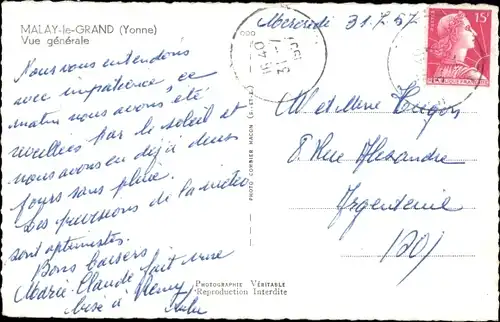 MALAY-le-GRAND (Yonne)
Vue générale
Mercredi 31.7.57
15F
Nous vous entendons
avec impatience ce
matin nous avons été
reveillees par le soleil et
nous avons eu déjà deux
jours sans pluie.
Les previsions de la météo
sont optimistes.
Bons baisers
Marie-Claude fait une
bise à Remy
PHOTO COMBIER MACON
M et Mme
8 Rue Alexandre
Argenteuil
PHOTOGRAPHIE VÉRITABLE
Reproduction Interdite